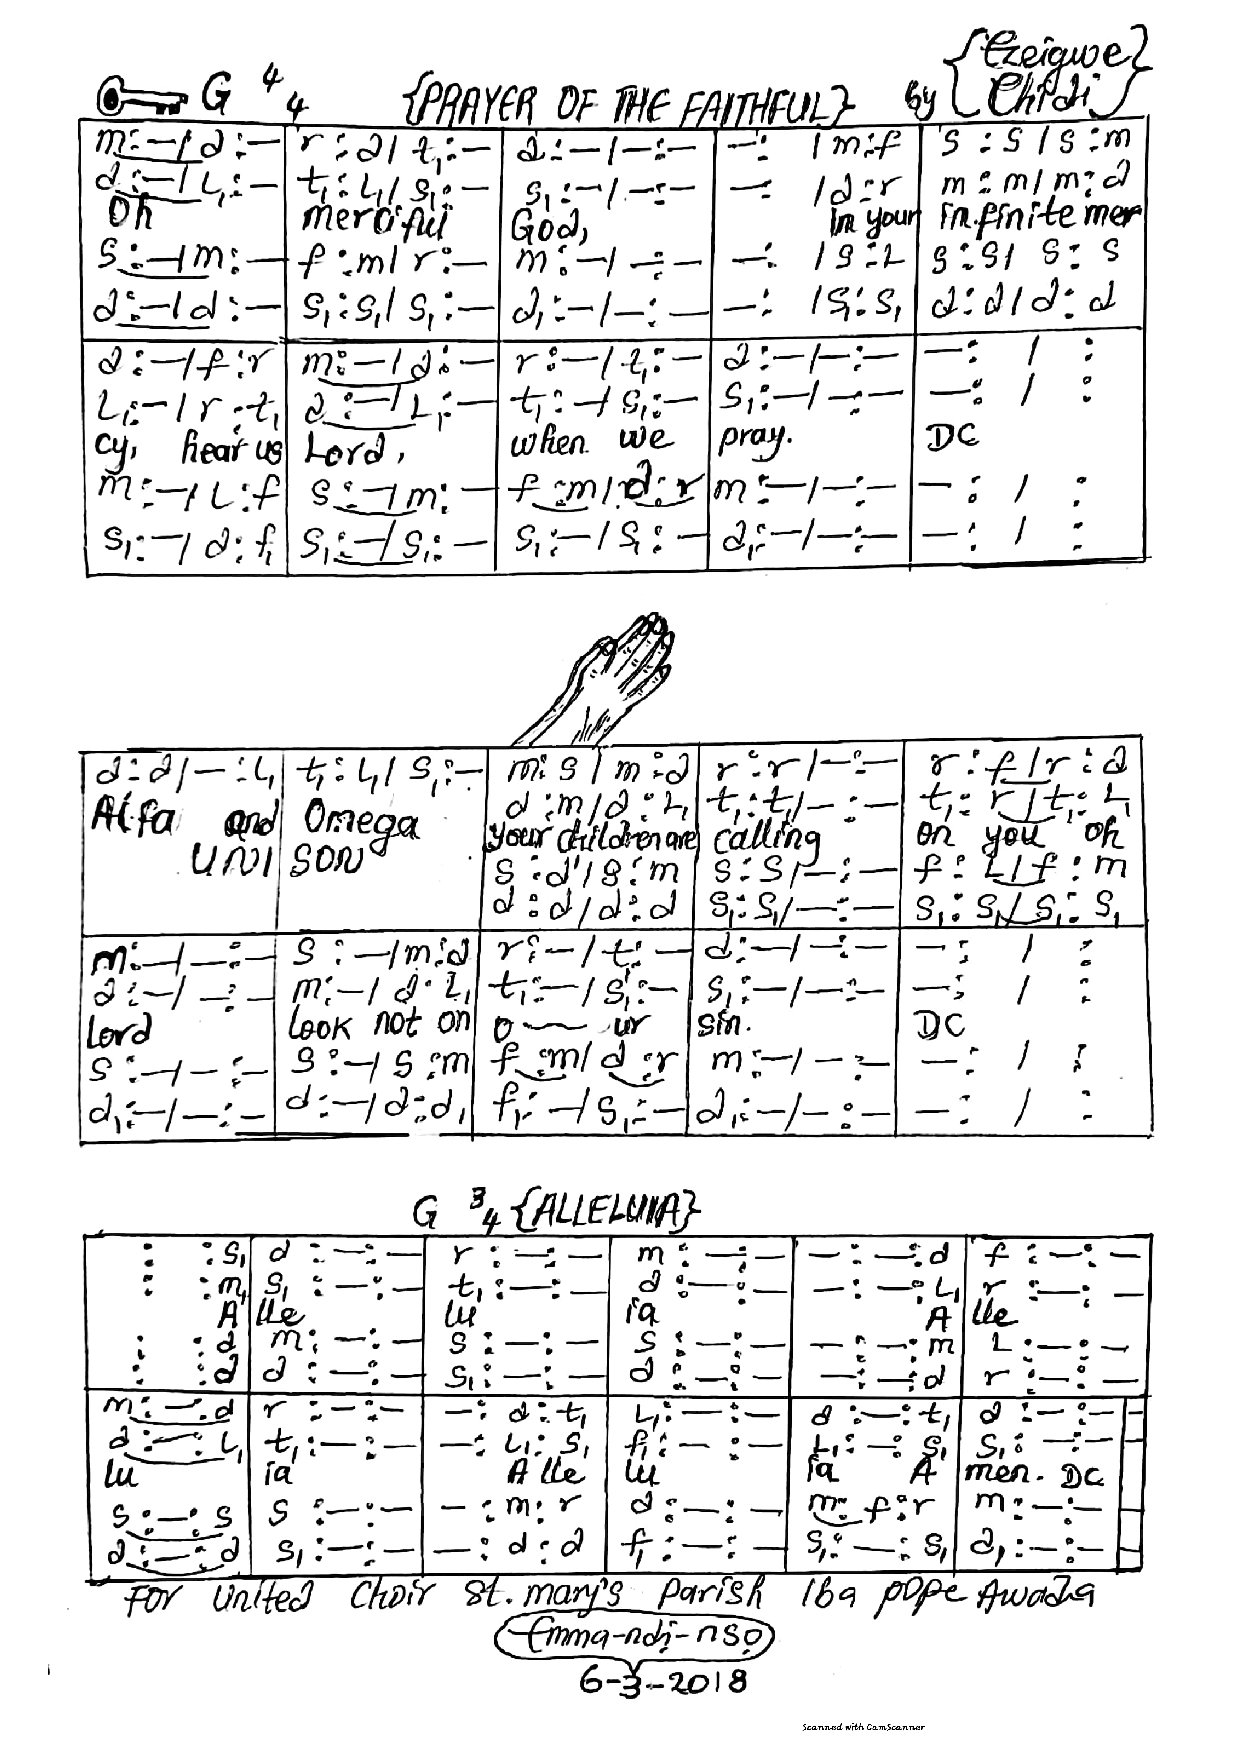 G 4/4 {PRAYER OF THE FAITHFUL} by {Ezeigwe Chidi}
m:—/d:— r:d/t₁:— d:—/—:— —: /m:f s:s/s:m
d:—/L₁:— t₁:L₁/s₁:— s₁:—/—:— —: /d:r m:m/m:d
Oh merciful God, in your infinite mer
s:—/m:— f:m/r:— m:—/—:— —: /s:L s:s/s:s
d:—/d:— s₁:s₁/s₁:— d₁:—/—:— —: /s₁:s₁ d:d/d:d
d:—/f:r m:—/d:— r:—/t₁:— d:—/—:— —: / :
L₁:—/r:t₁ d:—/L₁:— t₁:—/s₁:— s₁:—/—:— —: / :
cy, hear us Lord, when we pray. DC
m:—/L:f s:—/m:— f:m/d:r m:—/—:— —: / :
s₁:—/d:f₁ s₁:—/s₁:— s₁:—/s₁:— d₁:—/—:— —: / :
d:d/—:L₁ t₁:L₁/s₁:— m:s/m:d r:r/—:— r:f/r:d
d:m/d:L₁ t₁:t₁/—:— t₁:r/t₁:L₁
Alfa and Omega your children are calling on you oh
UNISON s:d'/s:m s:s/—:— f:L/f:m
d:d/d:d s₁:s₁/—:— s₁:s₁/s₁:s₁
m:—/—:— s:—/m:d r:—/t₁:— d:—/—:— —: / :
d:—/—:— m:—/d:L₁ t₁:—/s₁:— s₁:—/—:— —: / :
Lord look not on o~ur sin. DC
s:—/—:— s:—/s:m f:m/d:r m:—/—:— —: / :
d₁:—/—:— d:—/d:d₁ f₁:—/s₁:— d₁:—/—:— —: / :
G 3/4 {ALLELUIA}
: :s₁ d:—:— r:—:— m:—:— —:—:d f:—:—
: :m₁ s₁:—:— t₁:—:— d:—:— —:—:L₁ r:—:—
A lle lu ia A lle
: :d m:—:— s:—:— s:—:— —:—:m L:—:—
: :d d:—:— s₁:—:— d:—:— —:—:d r:—:—
m:—:d r:—:— —:d:t₁ L₁:—:— d:—:t₁ d:—:—
d:—:L₁ t₁:—:— —:L₁:s₁ f₁:—:— L₁:—:s₁ s₁:—:—
lu ia A lle lu ia A men. DC
s:—:s s:—:— —:m:r d:—:— m:f:r m:—:—
d:—:d s₁:—:— —:d:d f₁:—:— s₁:—:s₁ d₁:—:—
For United Choir St. mary's Parish Iba pope Awada
Emma-ndi-nso
6-3-2018
Scanned with CamScanner